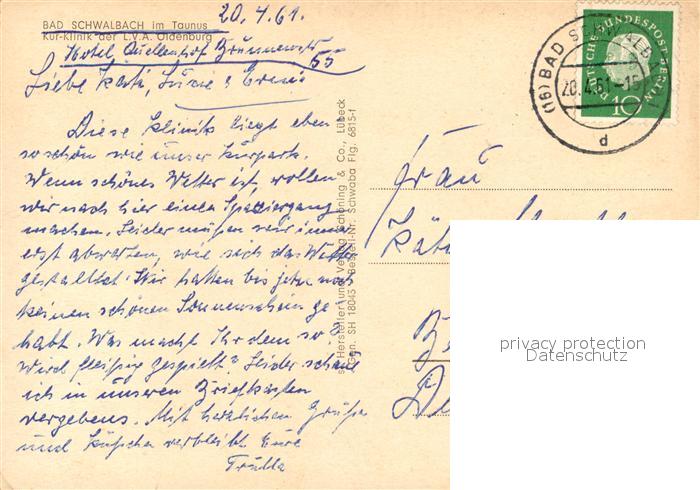 20.4.61.
BAD SCHWALBACH im Taunus
Kur-Klinik der L.V.A. Oldenburg
Hotel Quellenhof Brunnenstr
55
Liebe Käti, Luzie &
Diese Klinik liegt eben
so schön wie unser Kurpark.
Wenn schönes Wetter ist, wollen
wir nach hier einen Spaziergang
machen. Leider müssen wir immer
erst abwarten, wie sich das Wetter
gestaltet. Wir hatten bis jetzt noch
keinen schönen Sonnenschein ge
habt. Was macht Ihr denn so?
Wird fleißig gespielt? Leider schaue
ich in unseren Briefkasten
vergebens. Mit herzlichen Grüßen
und Küßchen verbleibt Eure
Trulla
Hersteller und Verlag Schöning & Co., Lübeck
Gen. SH 18045 Bestell-Nr. Schwaba Flg. 6815-1
DEUTSCHE BUNDESPOST BERLIN
10
(16) BAD SCHWALBACH
20.4.61-15
d
Frau
privacy protection
Datenschutz